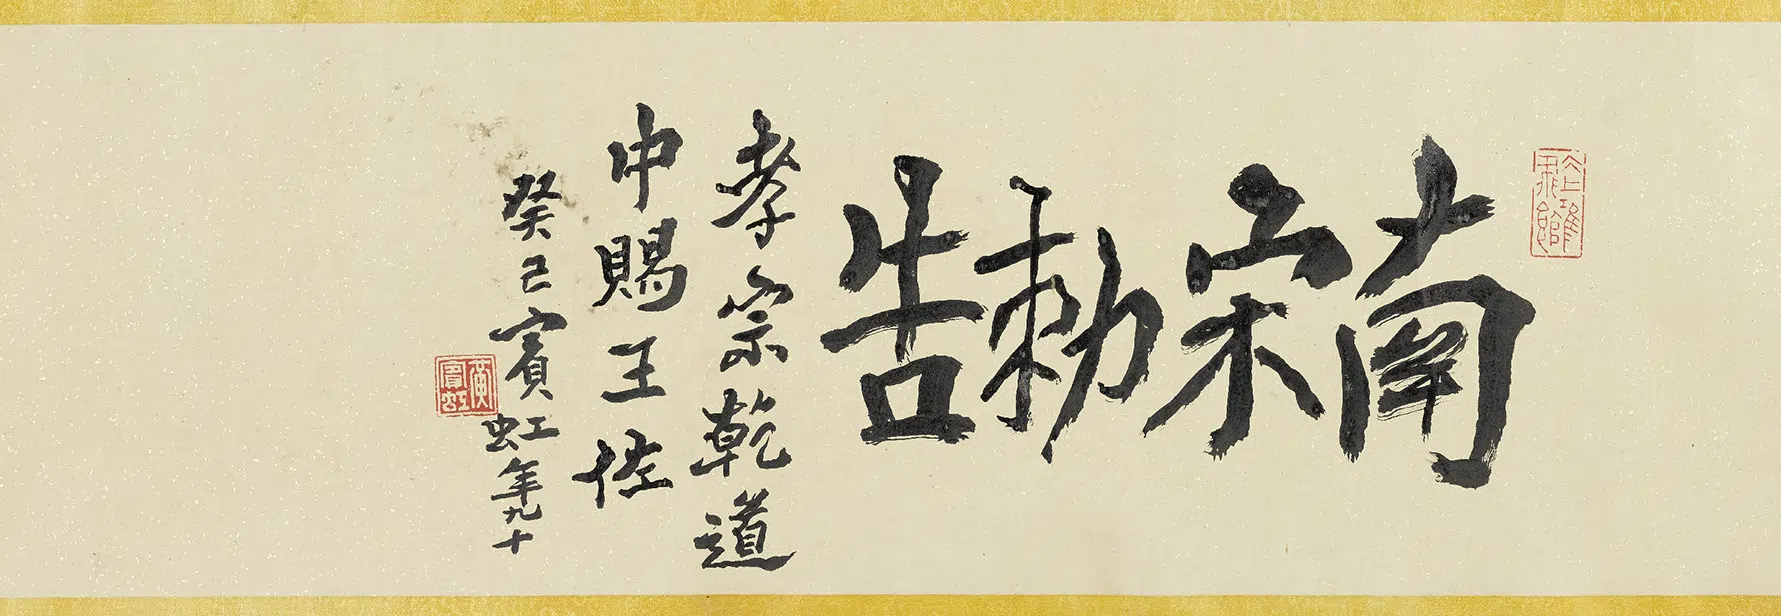 南宋勅告
孝宗乾道
中賜王佐
癸巳賓虹年九十
黃賓虹